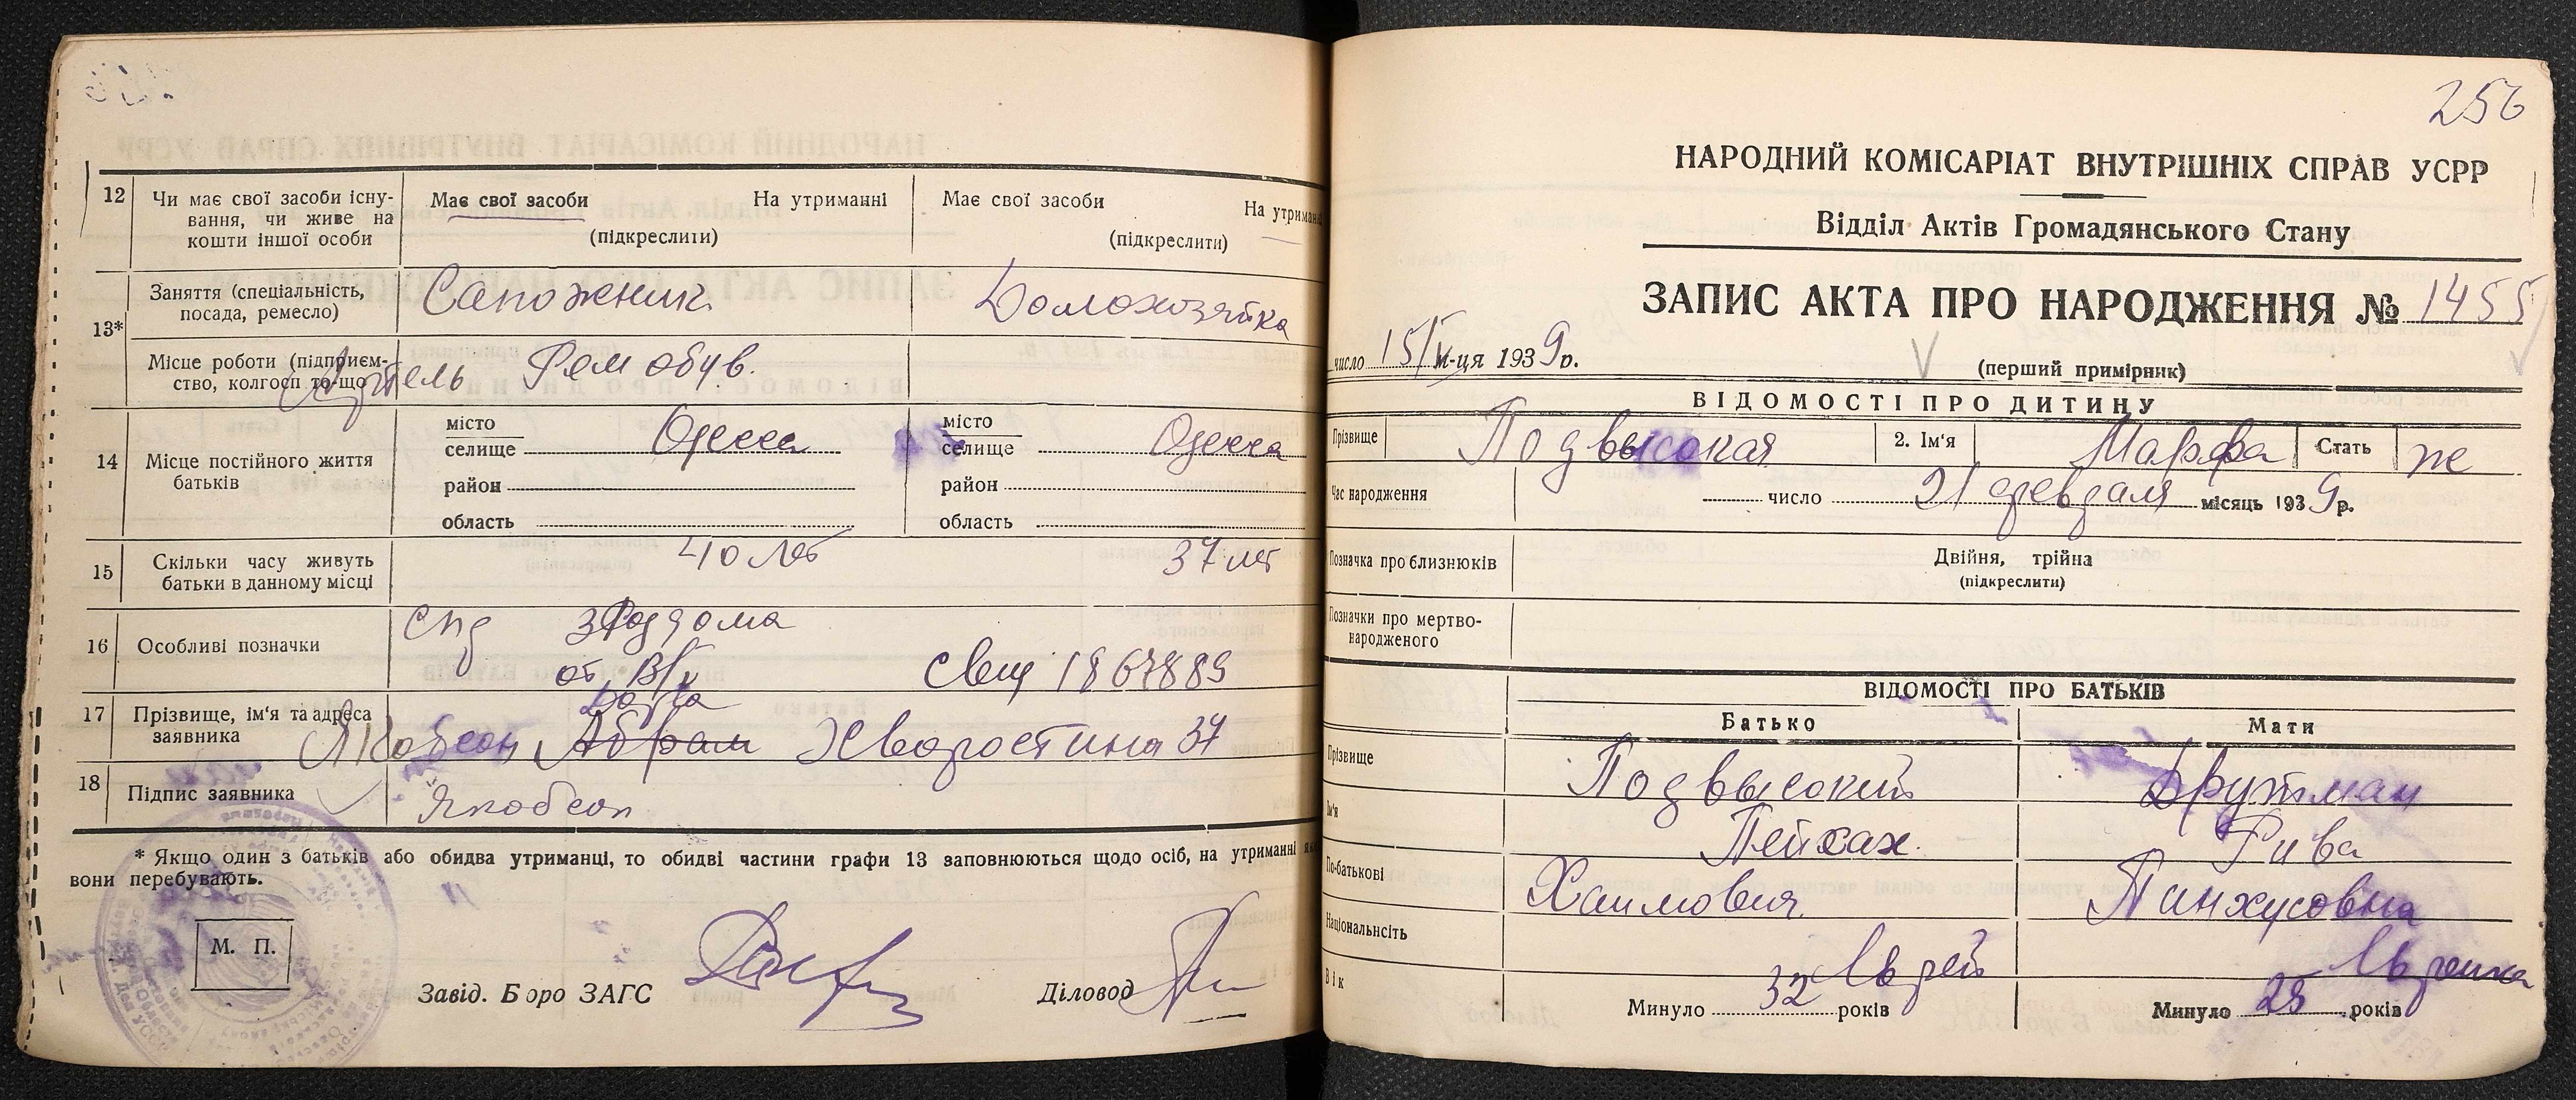 12 Чи має свої засоби існу-
вання, чи живе на
кошти іншої особи
Має свої засоби На утриманні
(підкреслити)
Має свої засоби На утриманні
(підкреслити)
13*
Заняття (спеціальність,
посада, ремесло)
Сапожник
Домохозяйка
Місце роботи (підприєм-
ство, колгосп то-що)
Артель Рем обув.
14 Місце постійного життя
батьків
місто
селище Одесса
район
область
місто
селище Одесса
район
область
15 Скільки часу живуть
батьки в данному місці
40 лет
37 лет
16 Особливі позначки
спд 3 Роддома
от
свид 1867889
17 Прізвище, ім'я та адреса
заявника
Якобсон Абрам Хворостина 37
18 Підпис заявника
Якобсон
* Якщо один з батьків або обидва утриманці, то обидві частини графи 13 заповнюються щодо осіб, на утриманні
вони перебувають.
М. П.
Завід. Бюро ЗАГС
Діловод
256
НАРОДНИЙ КОМІСАРІАТ ВНУТРІШНІХ СПРАВ УСРР
Відділ Актів Громадянського Стану
ЗАПИС АКТА ПРО НАРОДЖЕННЯ № 1455
число 15/V м-ця 1939 р.
(перший примірник)
ВІДОМОСТІ ПРО ДИТИНУ
Прізвище Подвысокая 2. Ім'я Марфа Стать ж
Час народження число 21 февраля місяць 1939 р.
Позначка про близнюків
Двійня, трійна
(підкреслити)
Позначки про мертво-
народженого
ВІДОМОСТІ ПРО БАТЬКІВ
Батько Мати
Прізвище Подвысокий Друтман
Ім'я Пейсах Рива
По-батькові Хаимович Пинхусовна
Національність Яврей Яврейка
Вік Минуло 32 років Минуло 25 років